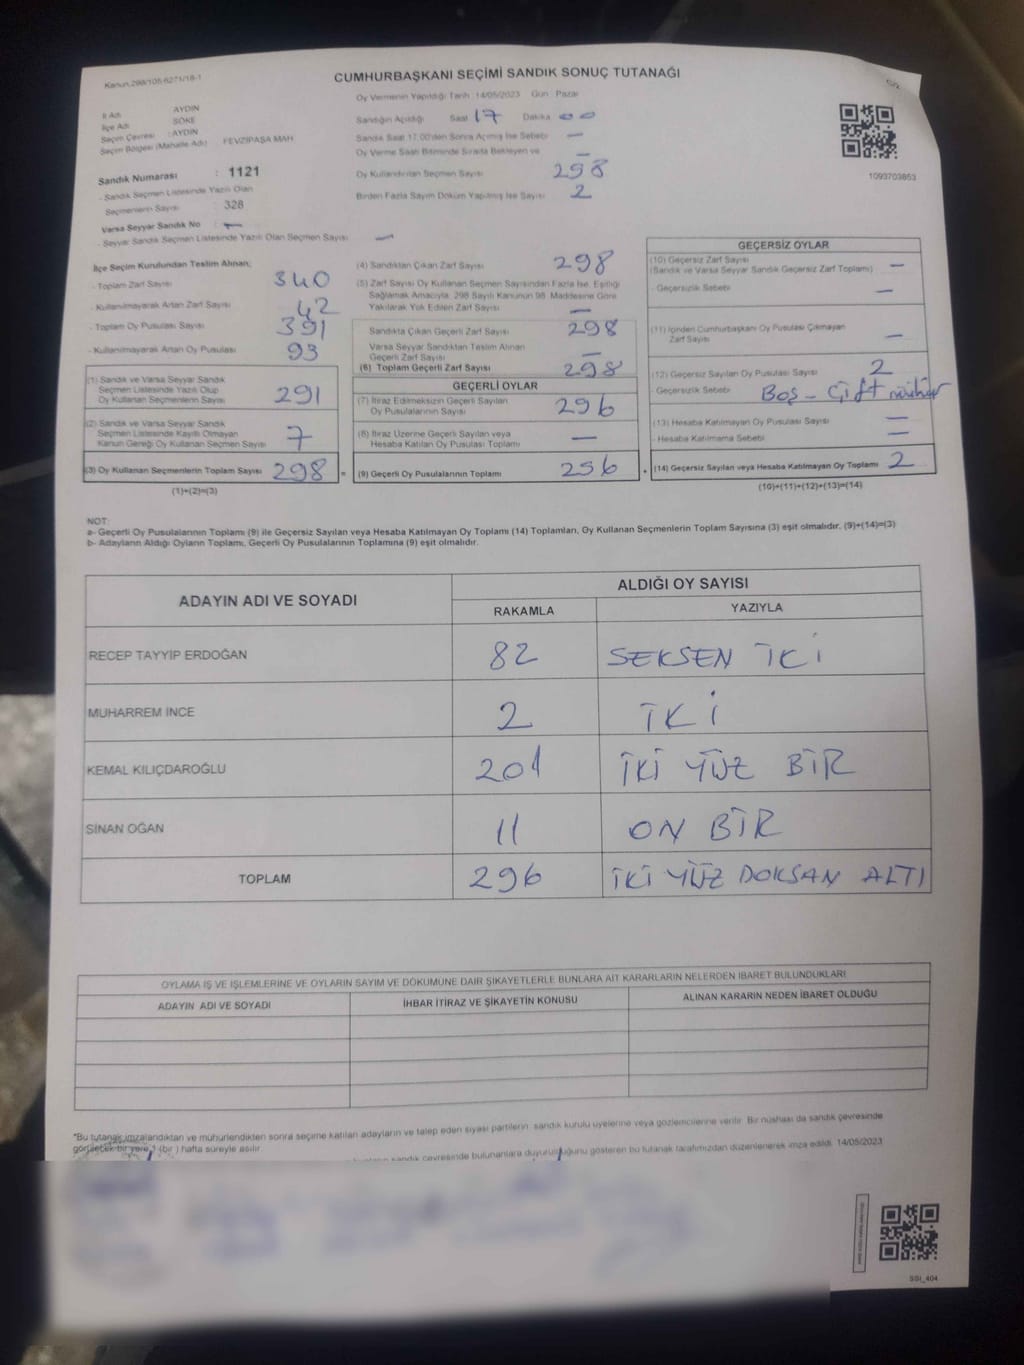 Kanun.298/105-6271/18-1
CUMHURBAŞKANI SEÇİMİ SANDIK SONUÇ TUTANAĞI
İl Adı AYDIN
İlçe Adı SÖKE
Seçim Çevresi : AYDIN
Seçim Bölgesi (Mahalle Adı) FEVZİPAŞA MAH
Sandık Numarası : 1121
- Sandık Seçmen Listesinde Yazılı Olan
Seçmenlerin Sayısı : 328
Varsa Seyyar Sandık No : —
- Seyyar Sandık Seçmen Listesinde Yazılı Olan Seçmen Sayısı —
Oy Vermenin Yapıldığı Tarih :14/05/2023 Gün : Pazar
Sandığın Açıldığı Saat 17 Dakika 00
Sandık Saat 17:00'den Sonra Açılmış İse Sebebi —
Oy Verme Saati Bitiminde Sırada Bekleyen ve
Oy Kullandırılan Seçmen Sayısı — 298
Birden Fazla Sayım Döküm Yapılmış İse Sayısı 2
1093703853
İlçe Seçim Kurulundan Teslim Alınan;
- Toplam Zarf Sayısı 340
- Kullanılmayarak Artan Zarf Sayısı 42
- Toplam Oy Pusulası Sayısı 391
- Kullanılmayarak Artan Oy Pusulası 93
(1) Sandık ve Varsa Seyyar Sandık
Seçmen Listesinde Yazılı Olup
Oy Kullanan Seçmenlerin Sayısı 291
(2) Sandık ve Varsa Seyyar Sandık
Seçmen Listesinde Kayıtlı Olmayan
Kanun Gereği Oy Kullanan Seçmen Sayısı 7
(3) Oy Kullanan Seçmenlerin Toplam Sayısı 298 =
(1)+(2)=(3)
(4) Sandıktan Çıkan Zarf Sayısı 298
(5) Zarf Sayısı Oy Kullanan Seçmen Sayısından Fazla İse, Eşitliği
Sağlamak Amacıyla, 298 Sayılı Kanunun 98. Maddesine Göre
Yakılarak Yok Edilen Zarf Sayısı —
Sandıkta Çıkan Geçerli Zarf Sayısı 298
Varsa Seyyar Sandıktan Teslim Alınan
Geçerli Zarf Sayısı —
(6) Toplam Geçerli Zarf Sayısı 298
GEÇERLİ OYLAR
(7) İtiraz Edilmeksizin Geçerli Sayılan
Oy Pusulalarının Sayısı 296
(8) İtiraz Üzerine Geçerli Sayılan veya
Hesaba Katılan Oy Pusulası Toplamı —
(9) Geçerli Oy Pusulalarının Toplamı 296 +
GEÇERSİZ OYLAR
(10) Geçersiz Zarf Sayısı
(Sandık ve Varsa Seyyar Sandık Geçersiz Zarf Toplamı) —
- Geçersizlik Sebebi —
(11) İçinden Cumhurbaşkanı Oy Pusulası Çıkmayan
Zarf Sayısı —
(12) Geçersiz Sayılan Oy Pusulası Sayısı 2
- Geçersizlik Sebebi Boş - Çift mühür
(13) Hesaba Katılmayan Oy Pusulası Sayısı —
- Hesaba Katılmama Sebebi —
(14) Geçersiz Sayılan veya Hesaba Katılmayan Oy Toplamı 2
(10)+(11)+(12)+(13)=(14)
NOT:
a- Geçerli Oy Pusulalarının Toplamı (9) ile Geçersiz Sayılan veya Hesaba Katılmayan Oy Toplamı (14) Toplamları, Oy Kullanan Seçmenlerin Toplam Sayısına (3) eşit olmalıdır. (9)+(14)=(3)
b- Adayların Aldığı Oyların Toplamı, Geçerli Oy Pusulalarının Toplamına (9) eşit olmalıdır.
ADAYIN ADI VE SOYADI ALDIĞI OY SAYISI
RAKAMLA YAZIYLA
RECEP TAYYİP ERDOĞAN 82 SEKSEN İKİ
MUHARREM İNCE 2 İKİ
KEMAL KILIÇDAROĞLU 201 İKİ YÜZ BİR
SİNAN OĞAN 11 ON BİR
TOPLAM 296 İKİ YÜZ DOKSAN ALTI
OYLAMA İŞ VE İŞLEMLERİNE VE OYLARIN SAYIM VE DÖKÜMÜNE DAİR ŞİKAYETLERLE BUNLARA AİT KARARLARIN NELERDEN İBARET BULUNDUKLARI
ADAYIN ADI VE SOYADI İHBAR İTİRAZ VE ŞİKAYETİN KONUSU ALINAN KARARIN NEDEN İBARET OLDUĞU
*Bu tutanak imzalandıktan ve mühürlendikten sonra seçime katılan adayların ve talep eden siyasi partilerin sandık kurulu üyelerine veya gözlemcilerine verilir. Bir nüshası da sandık çevresinde
görülecek bir yere 1 (bir ) hafta süreyle asılır.
sandık çevresinde bulunanlara duyurulduğunu gösteren bu tutanak tarafımızdan düzenlenerek imza edildi. 14/05/2023
SGI_404